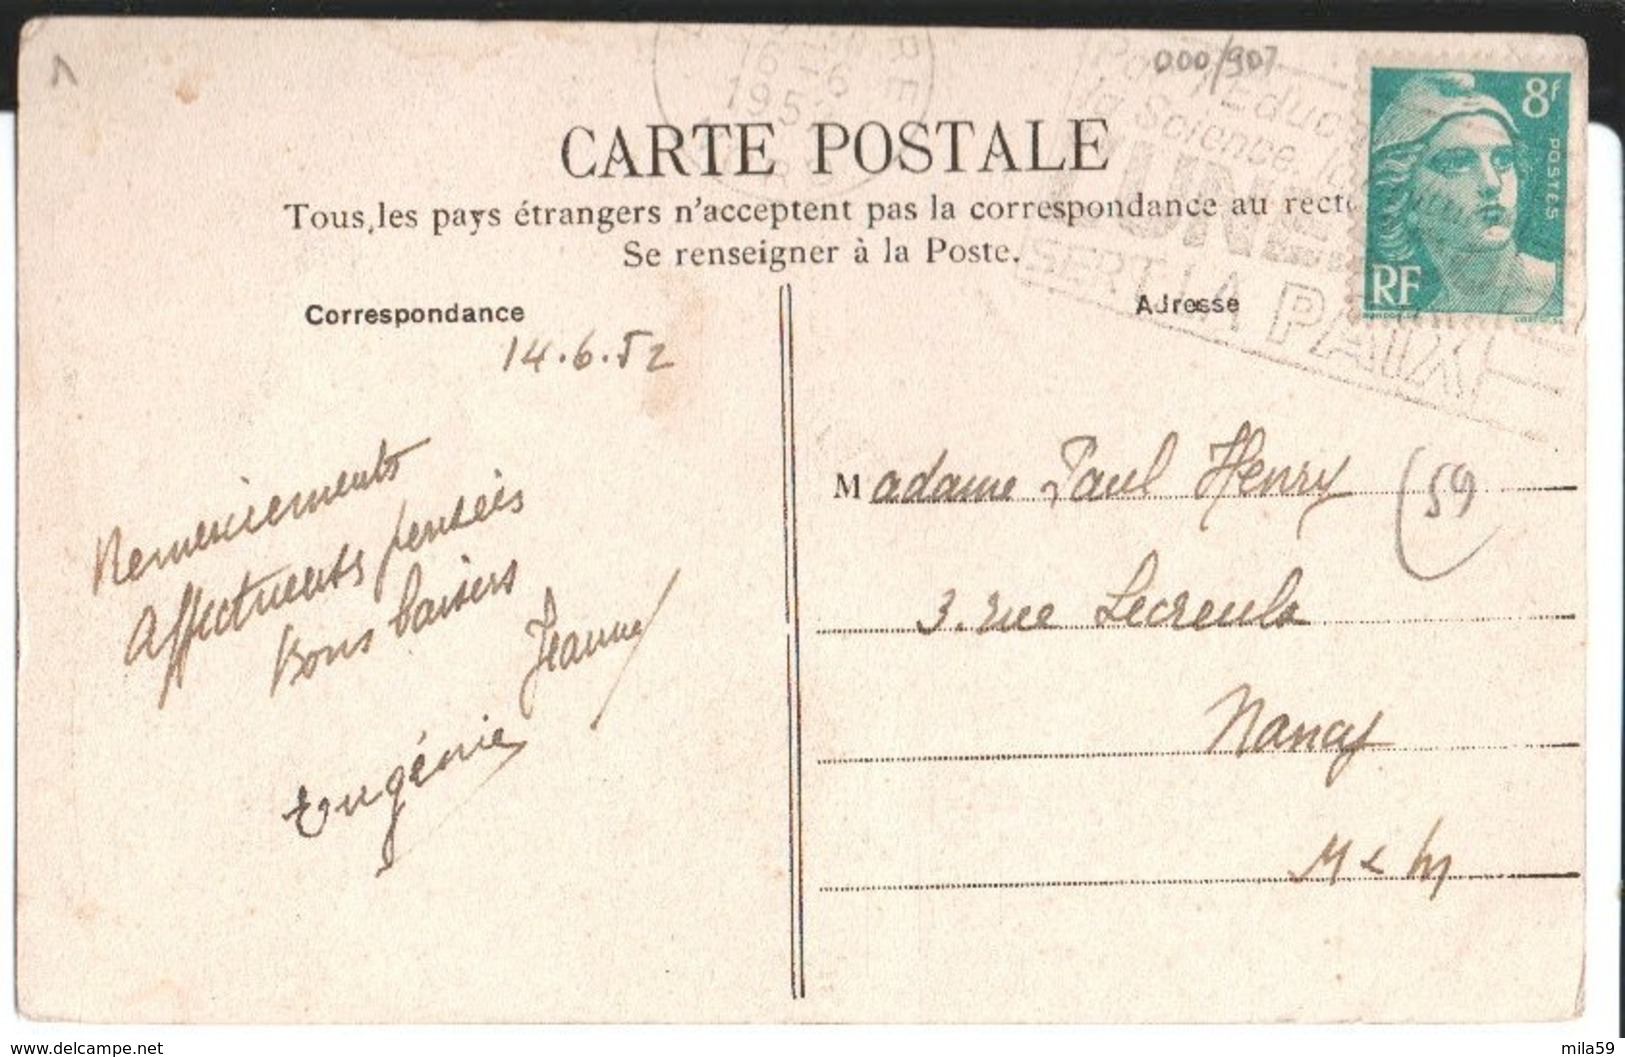 000/907
16-6
195
Pour l'Educ
la Science, la
L'UNE
SERT LA PAIX
8F
POSTES
RF
CARTE POSTALE
Tous les pays étrangers n'acceptent pas la correspondance au recto
Se renseigner à la Poste.
Correspondance
Adresse
14.6.52
Remerciements
Affectueuses pensées
Bons baisers
Jeanne
Eugénie
Madame Paul Henry
(59
3. rue Lecreulx
Nancy
M & M
www.delcampe.net
mila59